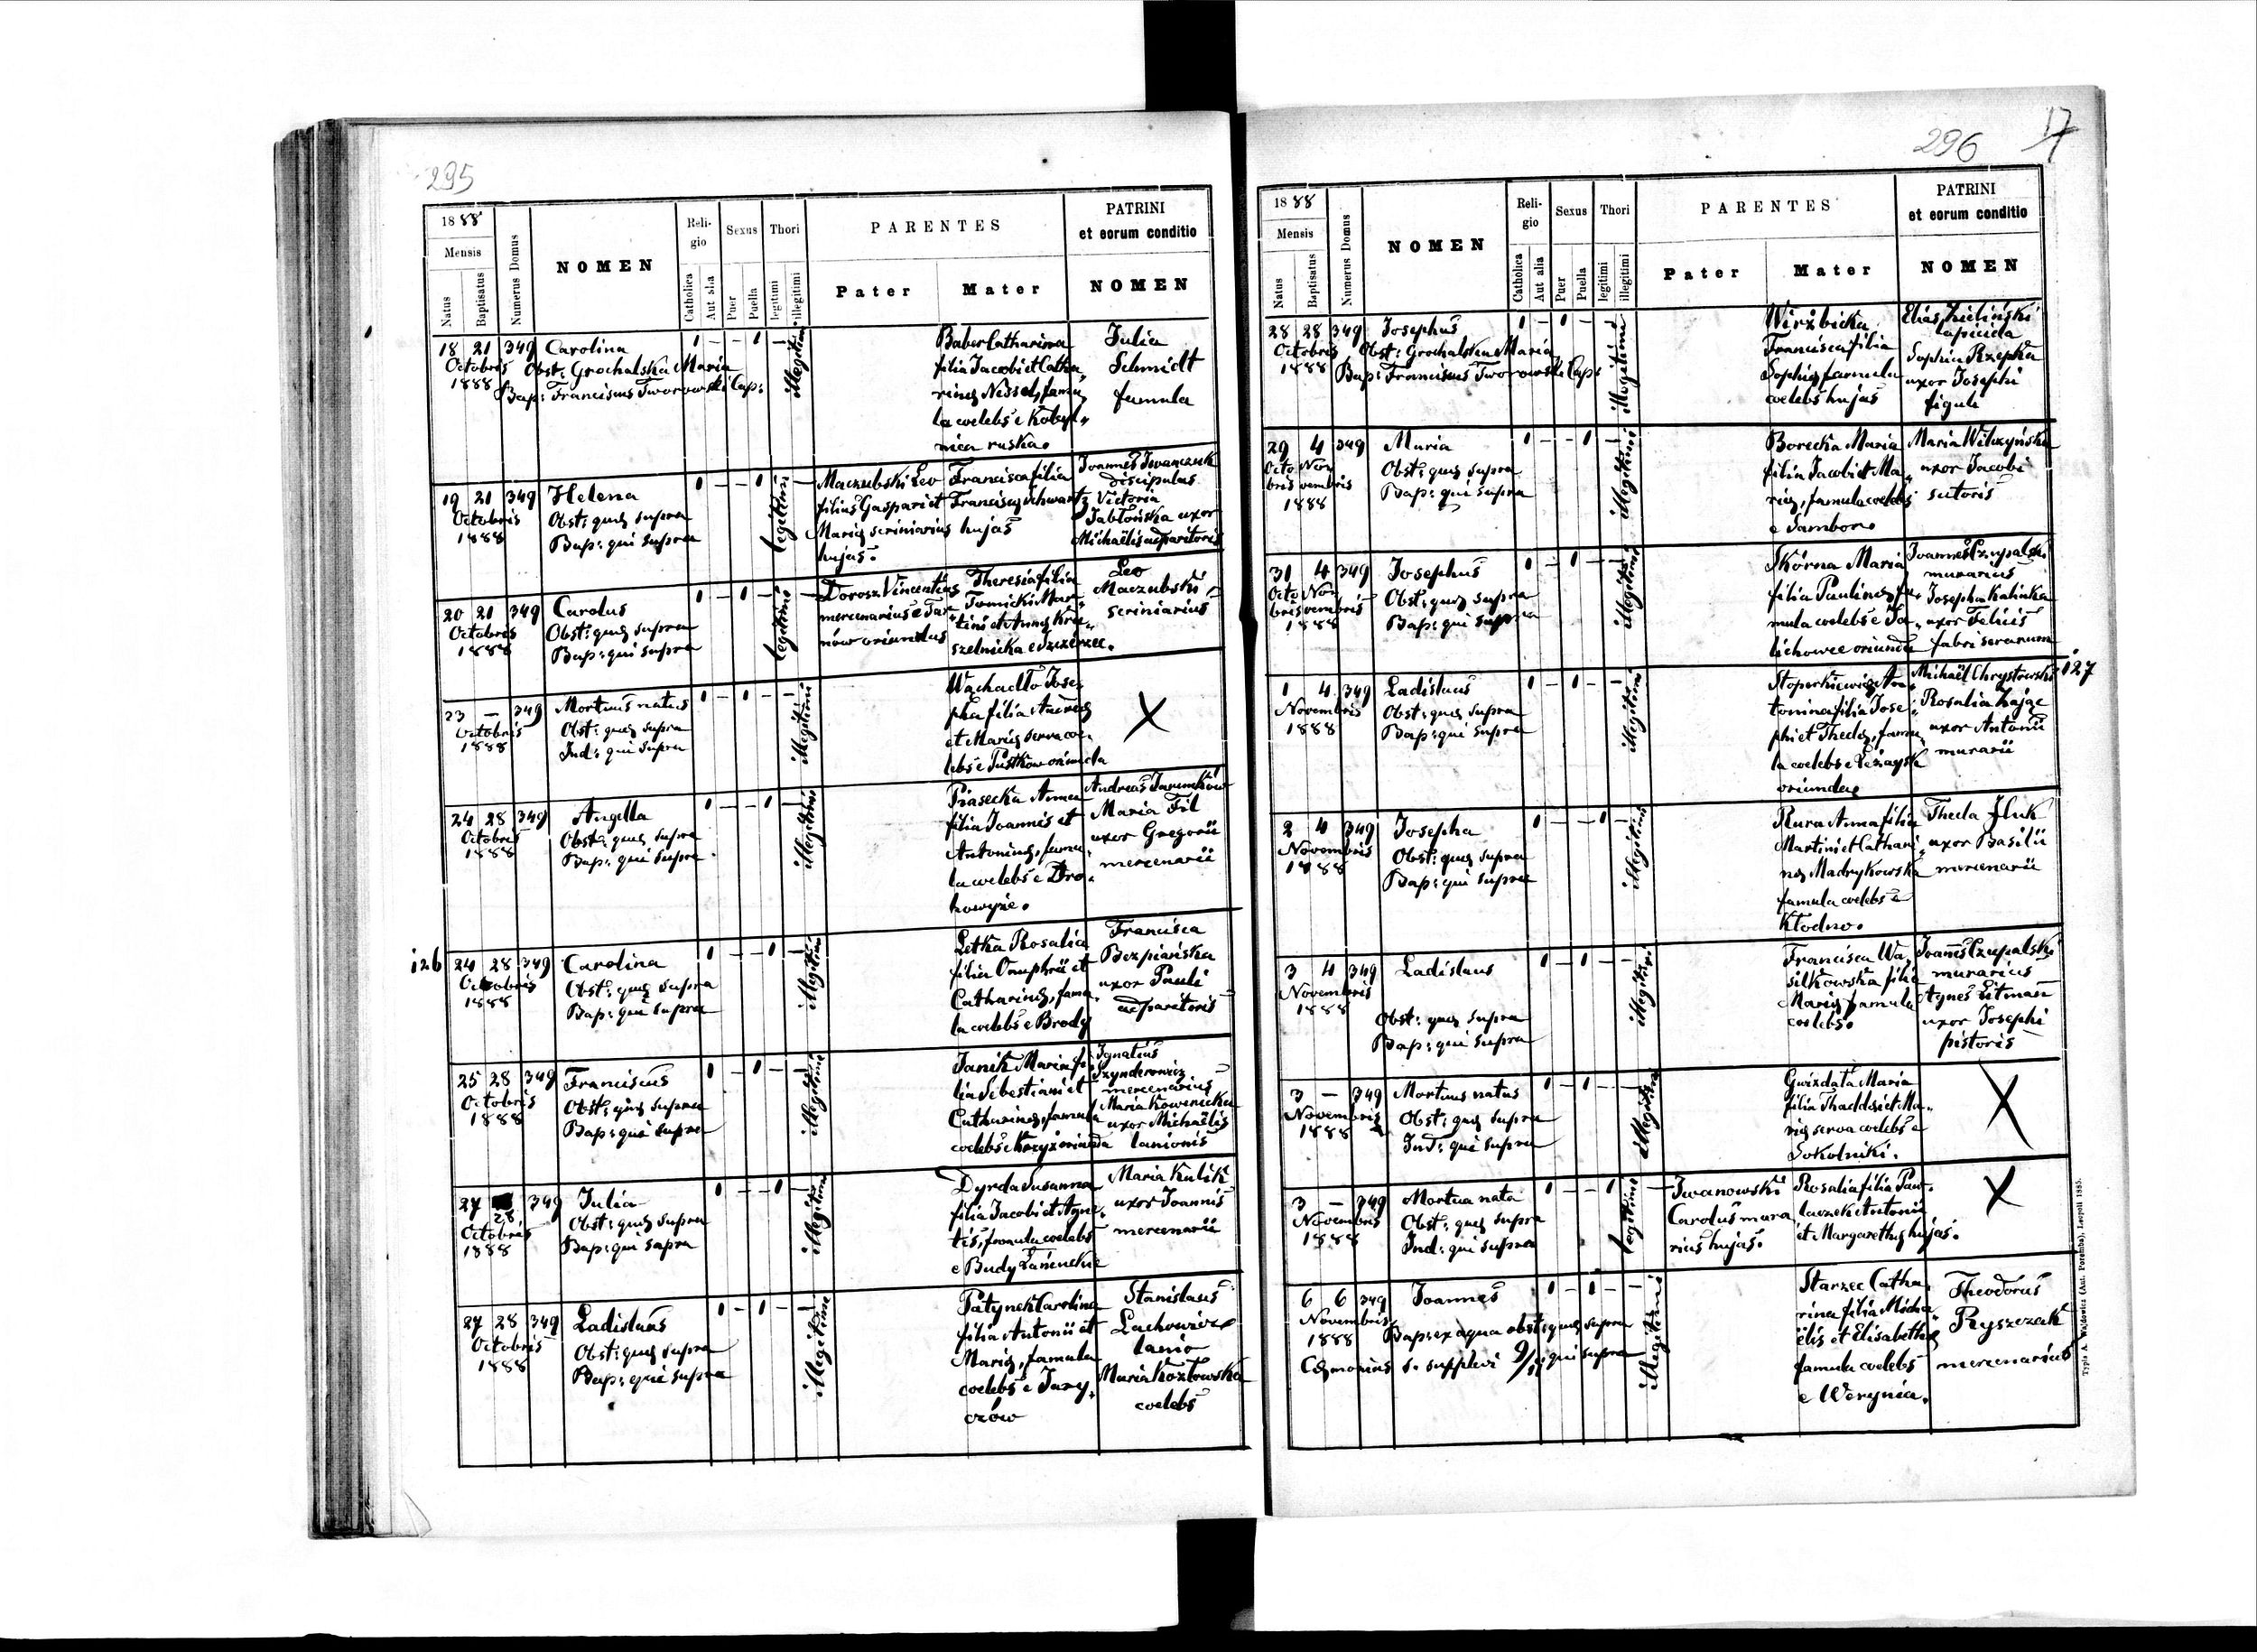 295
1888
Mensis
Natus
Baptisatus
Numerus Domus
NOMEN
Religio
Catholica
Aut alia
Sexus
Puer
Puella
Thori
legitimi
illegitimi
PARENTES
Pater
Mater
PATRINI
et eorum conditio
NOMEN
18 21 349 Carolina 1 – – 1 –
Octobris Obst: Grochalska Maria
1888 Bap: Franciscus Tworowski Cap:
illegitimi
Baber Catharina
filia Jacobi et Catha„
rinę Nessel, famu„
la coelebs e Kobyl„
nica ruska.
Julia
Schmidt
famula
19 21 349 Helena 1 – – 1 –
Octobris Obst: quę supra
1888 Bap: qui supra
legitimi
Maczubski Leo
filius Gaspari et
Marię scriniarius
hujas.
Francisca filia
Franciscy Schwartz
hujas
Joannes Iwanczuk
discipulus
Victoria
Jabłońska uxor
Michaëlis apparitoris
20 21 349 Carolus 1 – 1 – –
Octobris Obst: quę supra
1888 Bap: qui supra
legitimi
Dorosz Vincentius
mercenarius e Tar„
nów oriundus
Theresia filia
Tomicki Mar„
tini et Annę
Leo
Maczubski
scriniarius
23 – 349 Mortuus natus 1 – 1 – –
Octobris Obst: quę supra
1888 Ind: qui supra
illegitimi
Wachadło Jose„
pha filia
et Marię serva coe„
lebs e Pustków oriunda
X
24 28 349 Angella 1 – – 1 –
Octobris Obst: quę supra
1888 Bap: qui supra
illegitimi
Piasecka Anna
filia Joannis et
Antoninę, famu„
la coelebs e Dro„
howyże.
Andreas
Maria Fil
uxor Gregorii
mercenarii
126 24 28 349 Carolina 1 – – 1 –
Octobris Obst: quę supra
1888 Bap: qui supra
illegitimi
Letka Rosalia
filia Onuphrii et
Catharinę, famu„
la coelebs e Brody
Francisca
Bezpiańska
uxor Pauli
apparitoris
25 28 349 Franciscus 1 – 1 – –
Octobris Obst: quę supra
1888 Bap: qui supra
illegitimi
Janik Maria fi„
lia Sebestiani et
Catharinę, famula
coelebs e oriunda
Ignatius
Szynderowicz
mercenarius
Maria
uxor Michaëlis
lanionis
27 28 349 Julia 1 – – 1 –
Octobris Obst: quę supra
1888 Bap: qui supra
illegitimi
Dyrda Susanna
filia Jacobi et Agne„
tis, famula coelebs
e Budy Łańcuckie
Maria Kulik
uxor Joannis
mercenarii
27 28 349 Ladislaus 1 – 1 – –
Octobris Obst: quę supra
1888 Bap: qui supra
illegitimi
Patynek Carolina
filia Antonii et
Marię, famula
coelebs e Jary„
czów
Stanislaus
Lachowicz
lanio
Maria Kozłowska
coelebs
296 17
1888
Mensis
Natus
Baptisatus
Numerus Domus
NOMEN
Religio
Catholica
Aut alia
Sexus
Puer
Puella
Thori
legitimi
illegitimi
PARENTES
Pater
Mater
PATRINI
et eorum conditio
NOMEN
28 28 349 Josephus 1 – 1 – –
Octobris Obst: Grochalska Maria
1888 Bap: Franciscus Tworowski Cap:
illegitimi
Wirzbicka
Francisca filia
Sophię famula
coelebs hujas
Elias Zieliński
lapicida
Sophia Rzepka
uxor Josephi
figuli
29 4 349 Maria 1 – – 1 –
Octobris Novembris Obst: quę supra
1888 Bap: qui supra
illegitimi
Borecka Maria
filia Jacobi et Ma„
rię, famula coelebs
e Sambor.
Maria Wilczyńska
uxor Jacobi
sutoris
31 4 349 Josephus 1 – 1 – –
Octobris Novembris Obst: quę supra
1888 Bap: qui supra
illegitimi
Skórna Maria
filia Paulinę, fa„
mula coelebs e
oriunda
Joannes Czupalski
murarius
Josepha Kalinka
uxor Felicis
fabri serarum
1 4 349 Ladislaus 1 – 1 – –
Novembris Obst: quę supra
1888 Bap: qui supra
illegitimi
Stoperkiewicz An„
tonina filia Jose„
phi et Theclę, famu„
la coelebs e Leżaysk
oriunda.
Michaël Chrystowski
Rosalia Zając
uxor Antonii
murarii
127
2 4 349 Josepha 1 – – 1 –
Novembris Obst: quę supra
1888 Bap: qui supra
illegitimi
Rura Anna filia
Martini et Cathari„
nę Madrykowska
famula coelebs e
Kłodno.
Thecla Hluk
uxor Basilii
mercenarii
3 4 349 Ladislaus 1 – 1 – –
Novembris
1888 Obst: quę supra
Bap: qui supra
illegitimi
Francisca Wa„
silkowska filia
Marię famula
coelebs.
Joannes Czupalski
murarius
Agnes Litman
uxor Josephi
pistoris
3 – 349 Mortuus natus 1 – 1 – –
Novembris Obst: quę supra
1888 Ind: qui supra
illegitimi
Gwizdała Maria
filia Thaddei et Ma„
rię serva coelebs e
Sokolniki.
X
3 – 349 Mortua nata 1 – – 1 –
Novembris Obst: quę supra
1888 Ind: qui supra
legitimi
Iwanowski
Carolus mura„
rius hujas.
Rosalia filia Paw„
laczek Antonii
et Margarethę hujas.
X
6 6 349 Joannes 1 – 1 – –
Novembris Bap: ex aqua obst: quę supra
1888
Cęremonias s. supplevi 9/11 qui supra
illegitimi
Starzec Catha„
rina filia Micha„
ëlis et Elisabethę
famula coelebs
e Werynia.
Theodorus
Ryszczak
mercenarius
Typis A. Wajdowicz (Ant. Poremba), Leopoli 1885.